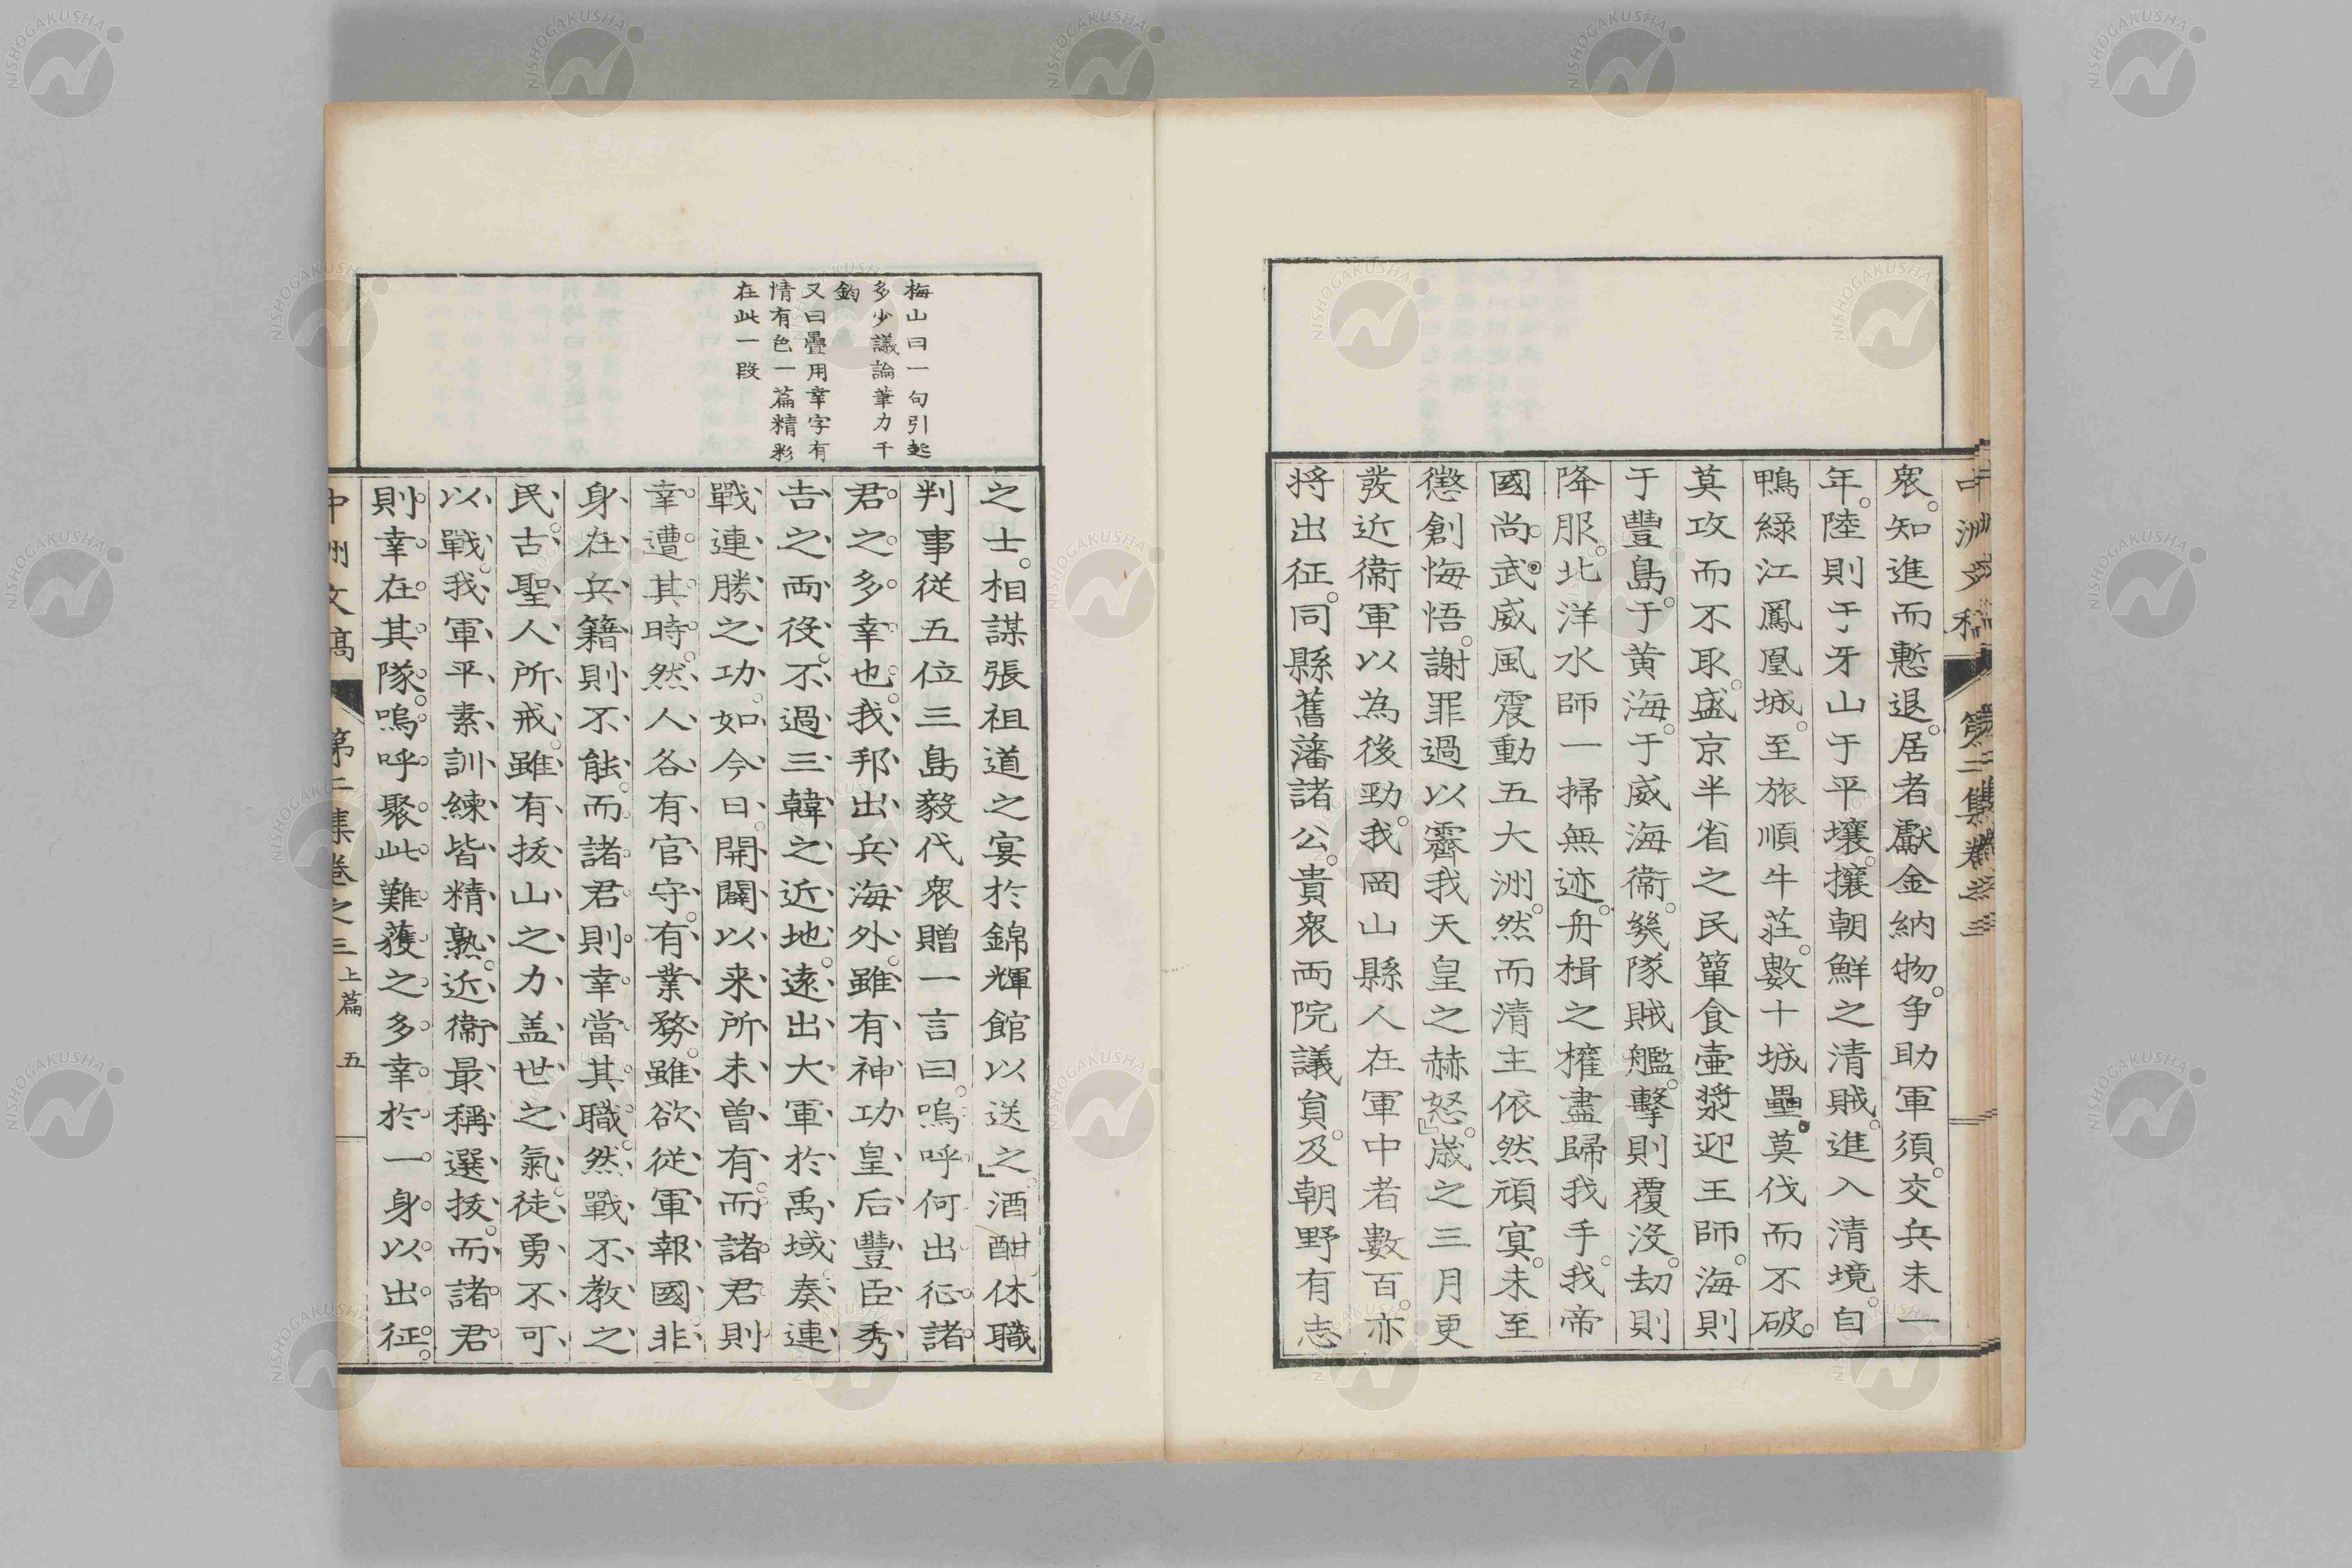 衆。知進而慙退。居者獻金納物。争助軍須。交兵未一
年。陸則于牙山于平壤。攘朝鮮之清賊。進入清境。自
鴨緑江鳳凰城。至旅順牛莊。數十城壘。莫伐而不破。
莫攻而不取。盛京半省之民簞食壷漿迎王師。海則
于豐島。于黄海。于威海衞。幾隊賊艦。擊則覆沒。劫則
降服。北洋水師一掃無迹。舟楫之權盡歸我手。我帝
國尚武威風震動五大洲。然而清主依然頑冥。未至
懲創悔悟。謝罪過以霽我天皇之赫怒。』歳之三月更
發近衞軍以為後勁。我岡山縣人在軍中者數百。亦
将出征。同縣舊藩諸公。貴衆兩院議員。及朝野有志
之士。相謀張祖道之宴於錦輝館以送之』酒酣休職
判事從五位三島毅代衆贈一言曰。嗚呼何出征諸
君之多幸也。我邦出兵海外。雖有神功皇后豐臣秀
吉之兩役。不過三韓之近地。遠出大軍於禹域。奏連
戰連勝之功。如今日。開闢以来所未曽有。而諸君則
幸遭其時。然人各有官守。有業務。雖欲從軍報國。非
身在兵籍則不能。而諸君則幸當其職。然戰不教之
民。古聖人所戒。雖有拔山之力盖世之氣。徒勇不可
以戰。我軍平素訓練皆精熟。近衞最稱選拔。而諸君
則幸在其隊。嗚呼聚此難獲之多幸於一身以出征。
梅山曰一句引起
多少議論筆力千
鈞
又曰疊用幸字有
情有色一篇精彩
在此一段
中洲文稿
第二集卷之三
上篇
五